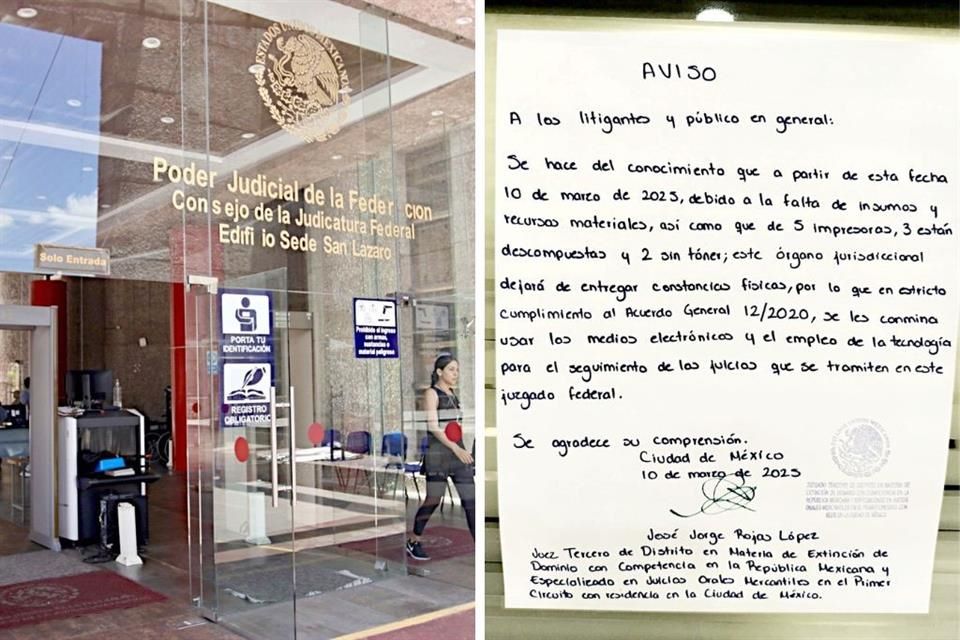 ESTADOS UNIDOS MEXICANOS
Poder Judicial de la Federación
Consejo de la Judicatura Federal
Edifi io Sede San Lazaro
Solo Entrada
PORTA TU
IDENTIFICACIÓN
REGISTRO
OBLIGATORIO
Prohibido el ingreso
con armas,
sustancias o
material peligroso
AVISO
A los litigantes y público en general:
Se hace del conocimiento que a partir de esta fecha
10 de marzo de 2025, debido a la falta de insumos y
recursos materiales, así como que de 5 impresoras, 3 están
descompuestas y 2 sin tóner; este órgano jurisdiccional
dejará de entregar constancias físicas, por lo que en estricto
cumplimiento al Acuerdo General 12/2020, se les conmina
usar los medios electrónicos y el empleo de la tecnología
para el seguimiento de los juicios que se tramiten en este
juzgado federal.
Se agradece su comprensión.
Ciudad de México
10 de marzo de 2025
JUZGADO TERCERO DE DISTRITO EN MATERIA DE
EXTINCIÓN DE DOMINIO CON COMPETENCIA EN LA
REPÚBLICA MEXICANA Y ESPECIALIZADO EN JUICIOS
ORALES MERCANTILES EN EL PRIMER CIRCUITO CON
SEDE EN LA CIUDAD DE MÉXICO
José Jorge Rojas López
Juez Tercero de Distrito en Materia de Extinción de
Dominio con Competencia en la República Mexicana y
Especializado en Juicios Orales Mercantiles en el Primer
Circuito con residencia en la Ciudad de México.